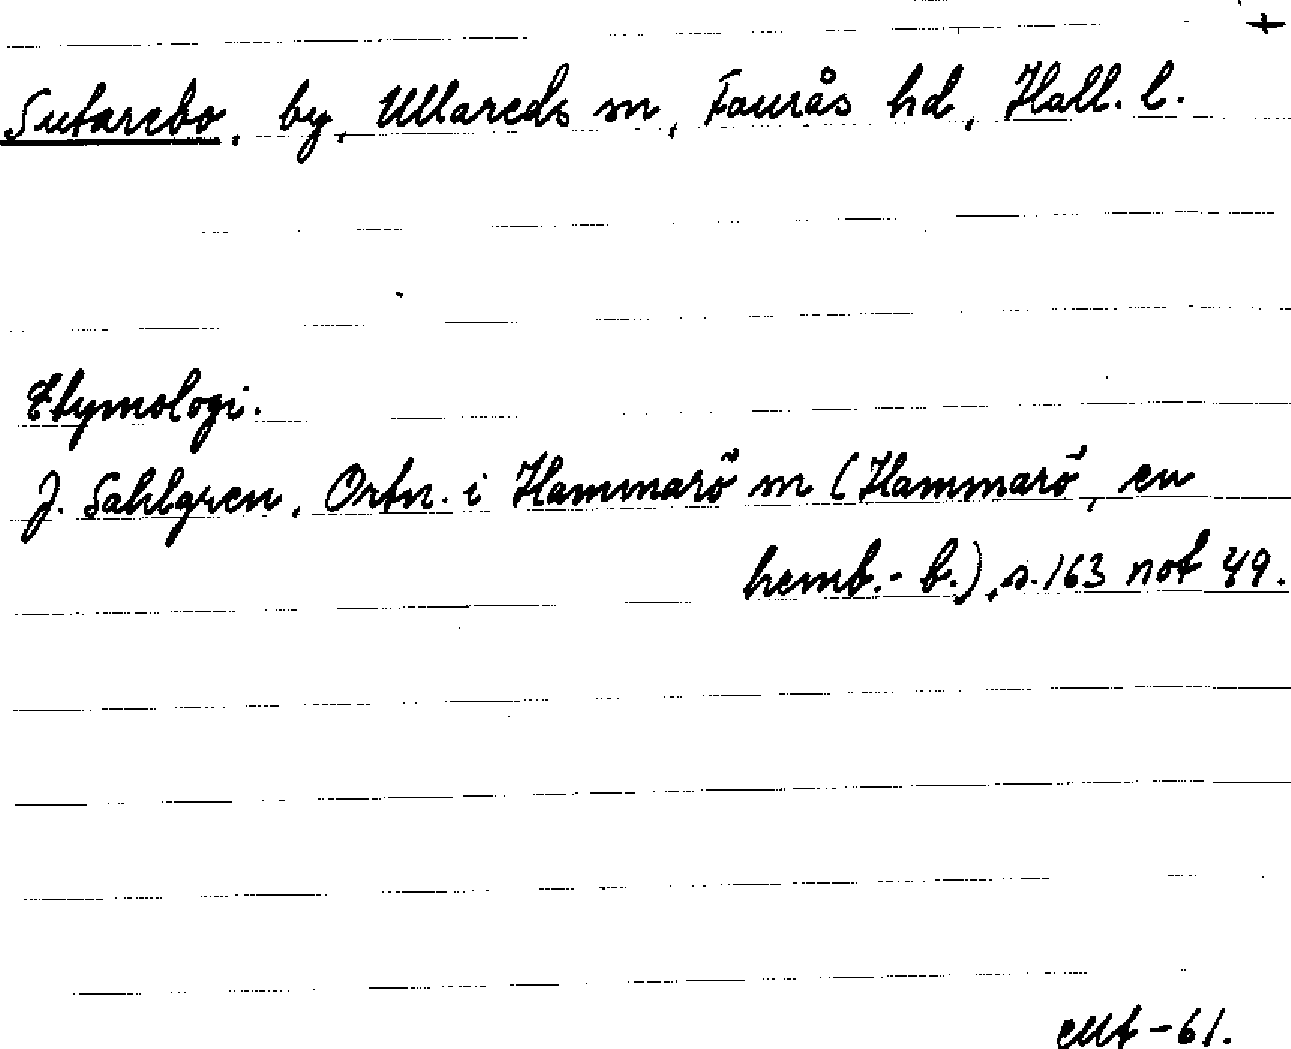 +
Sutarebo, by, Ullareds sn, Faurås hd, Hall. l.
Etymologi.
J. Sahlgren, Ortn. i Hammarö sn (Hammarö, en
hemb.- b.), s. 163 not 49.
-61.